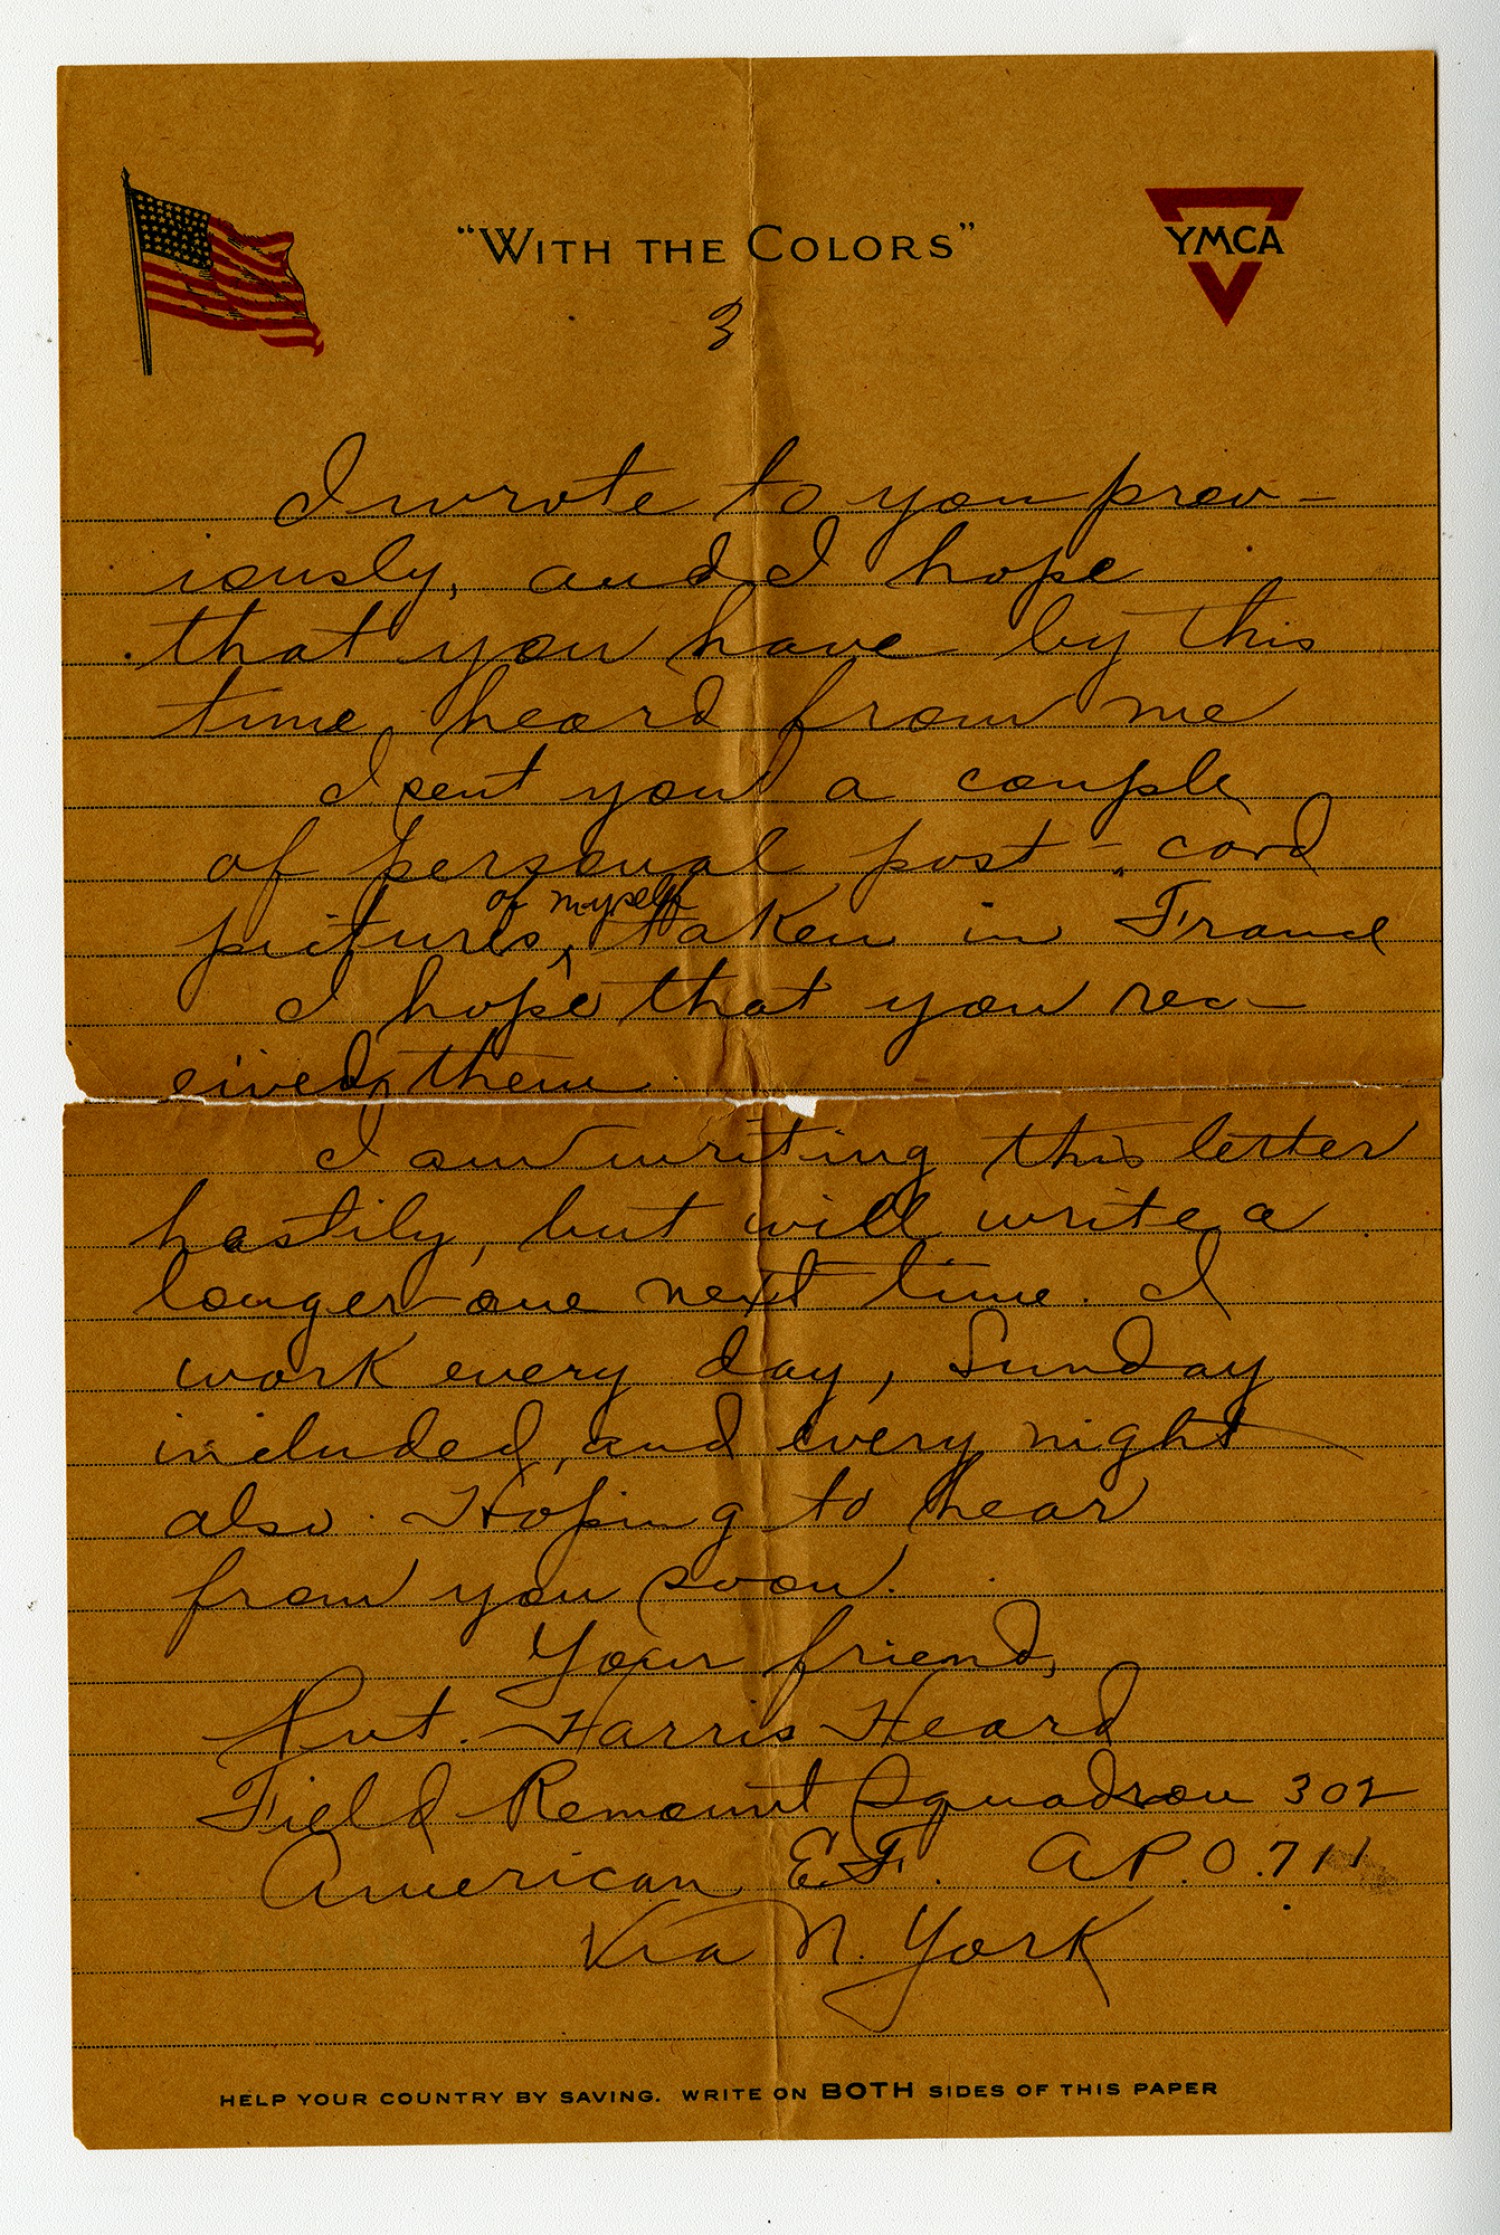 "WITH THE COLORS"
YMCA
3
I wrote to you prev-
iously, and I hope
that you have by this
time heard from me
I sent you a couple
of personal post-card
pictures, of myself taken in France
I hope that you rec-
eived them.
I am writing this letter
hastily, but will write a
longer one next time. I
work every day, Sunday
included, and every night
also. Hoping to hear
from you soon.
Your friend,
Pvt. Harris Heard
Field Remount Squadron 302
American E.F. A.P.O. 711
Via N. York
HELP YOUR COUNTRY BY SAVING. WRITE ON BOTH SIDES OF THIS PAPER